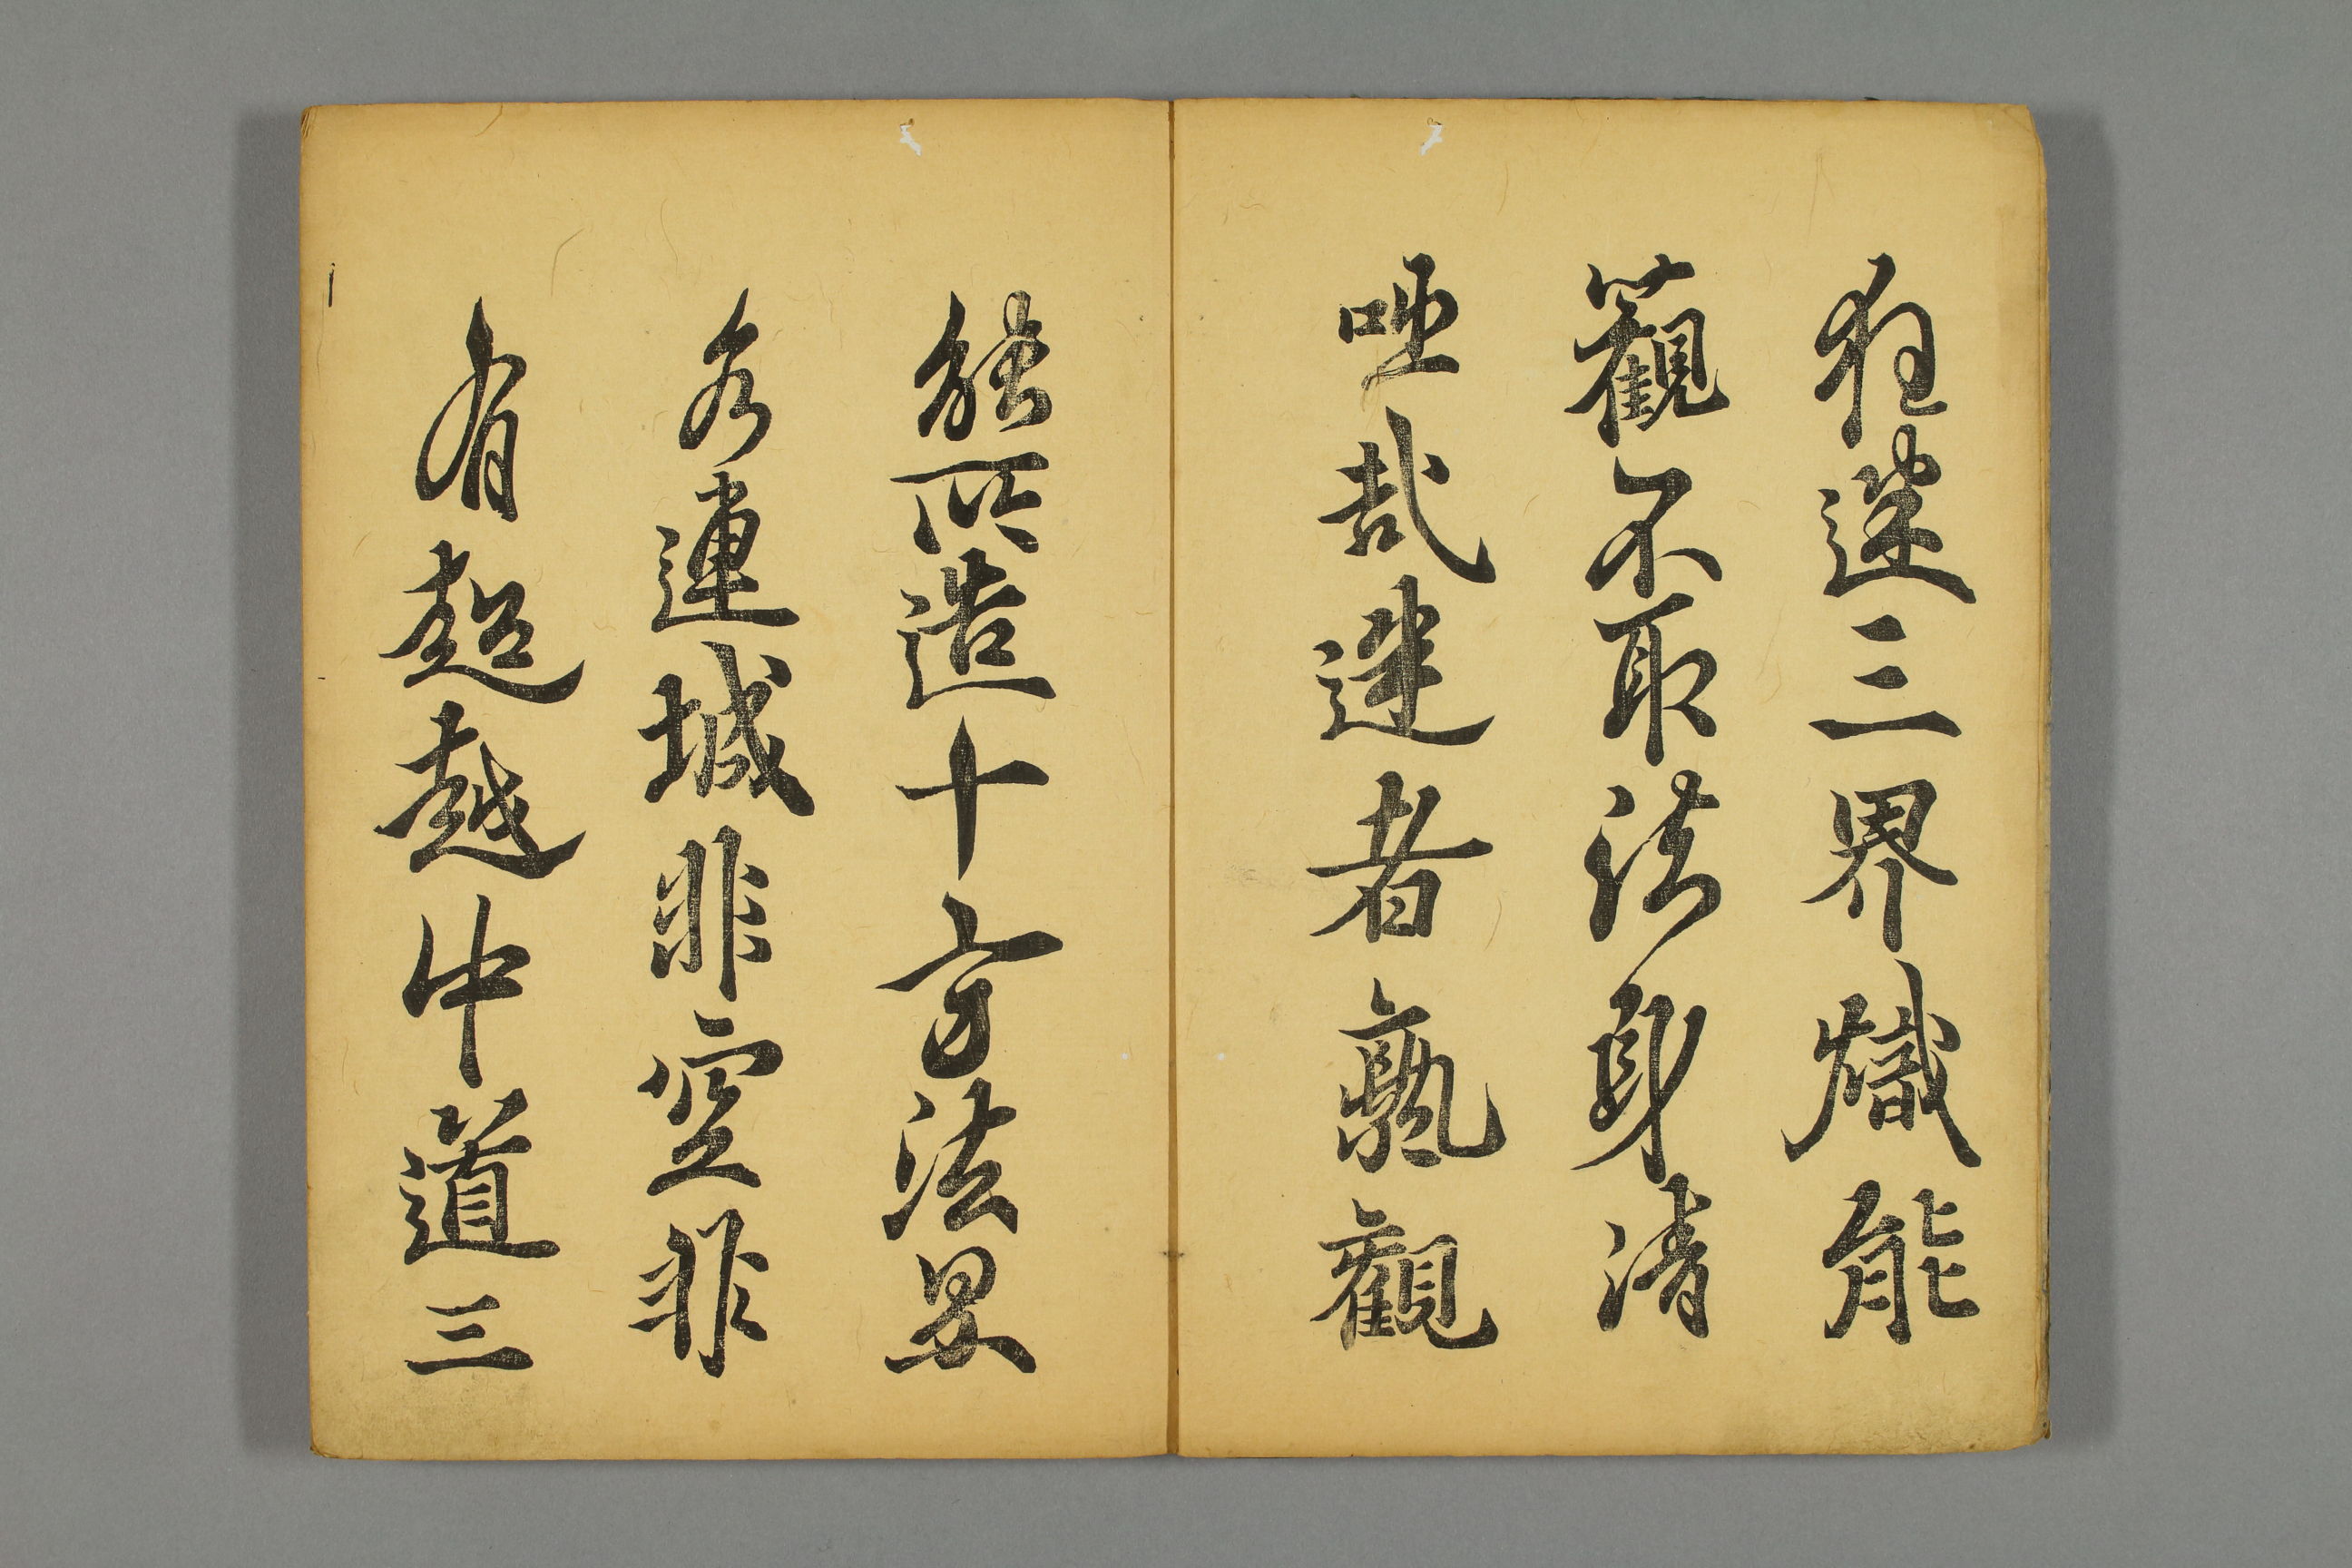 狂迷三界熾能
觀不取法身清
咄哉迷者孰觀
能所造十方法界
水連城非空非
有超越中道三